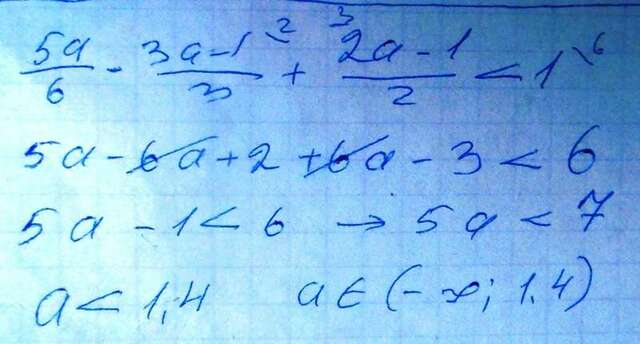 5a/6 - 3a-1/3 \2 + 3/ 2a-1/2 < 1 \6
5a - 6a + 2 + 6a - 3 < 6
5a - 1 < 6 → 5a < 7
a < 1,4 a ∈ (-∞; 1,4)